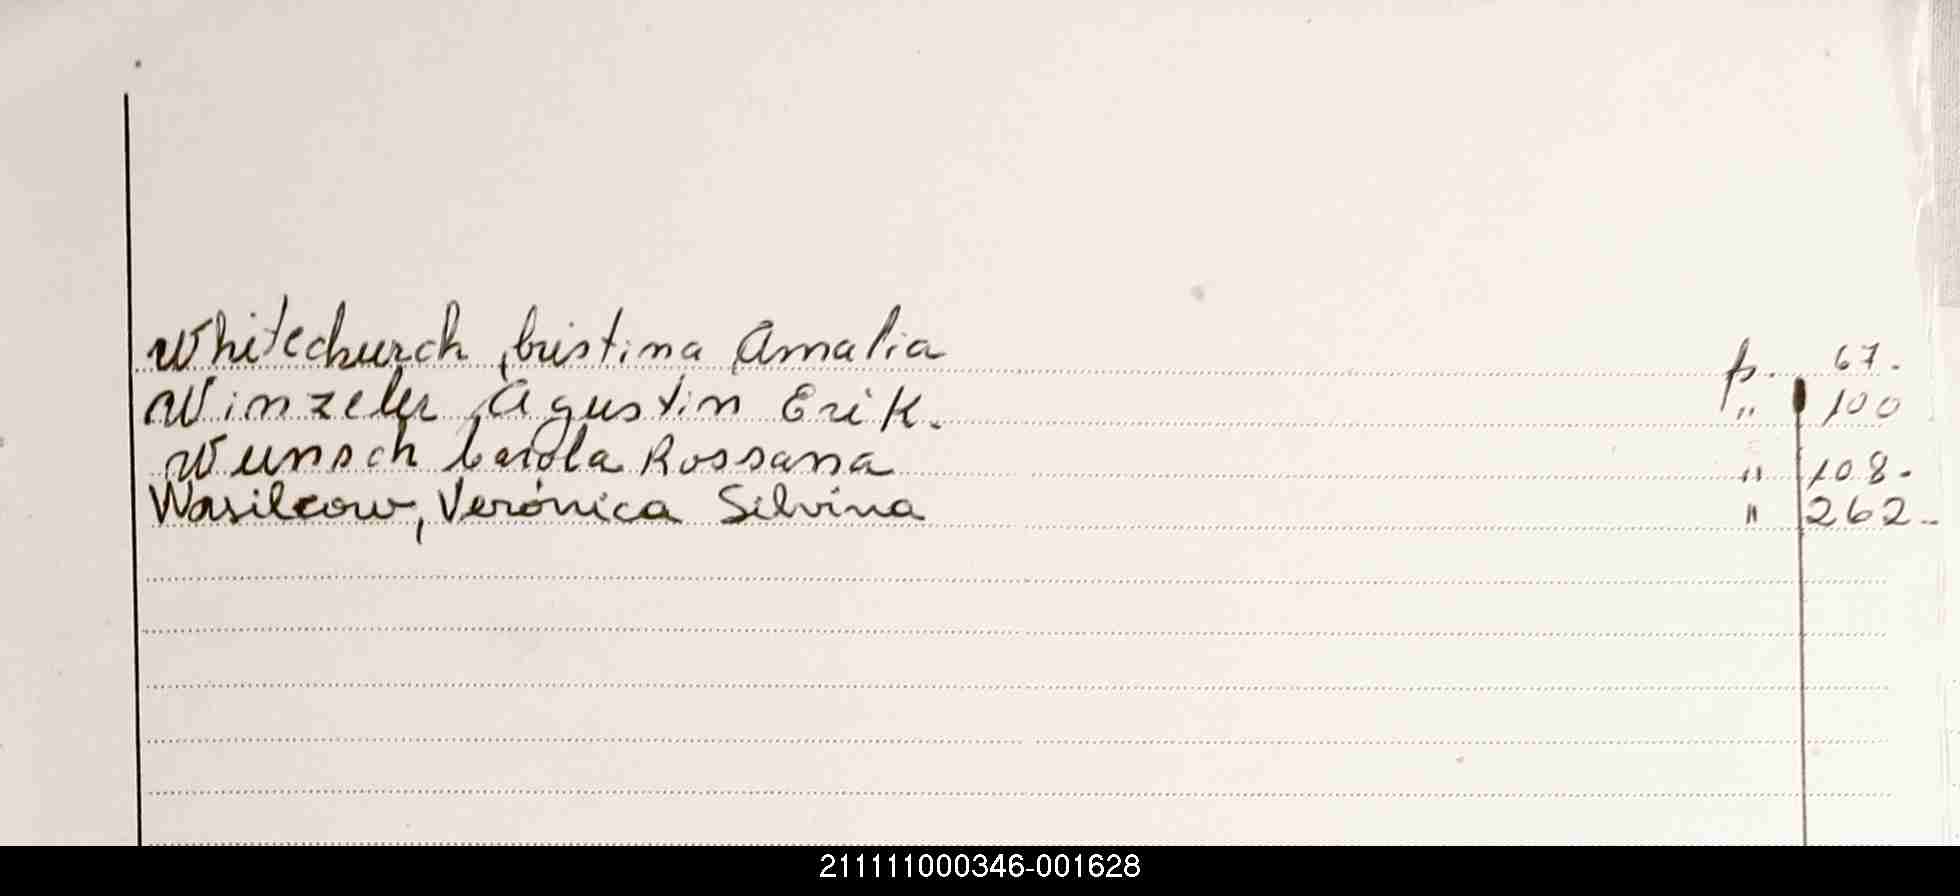 Whitechurch, Cristina Amalia p. 67.
Winzeler, Agustin Erik. " 100
Wunsch Carola Rossana " 108.
Wasilcow, Verónica Silvina " 262.
211111000346-001628